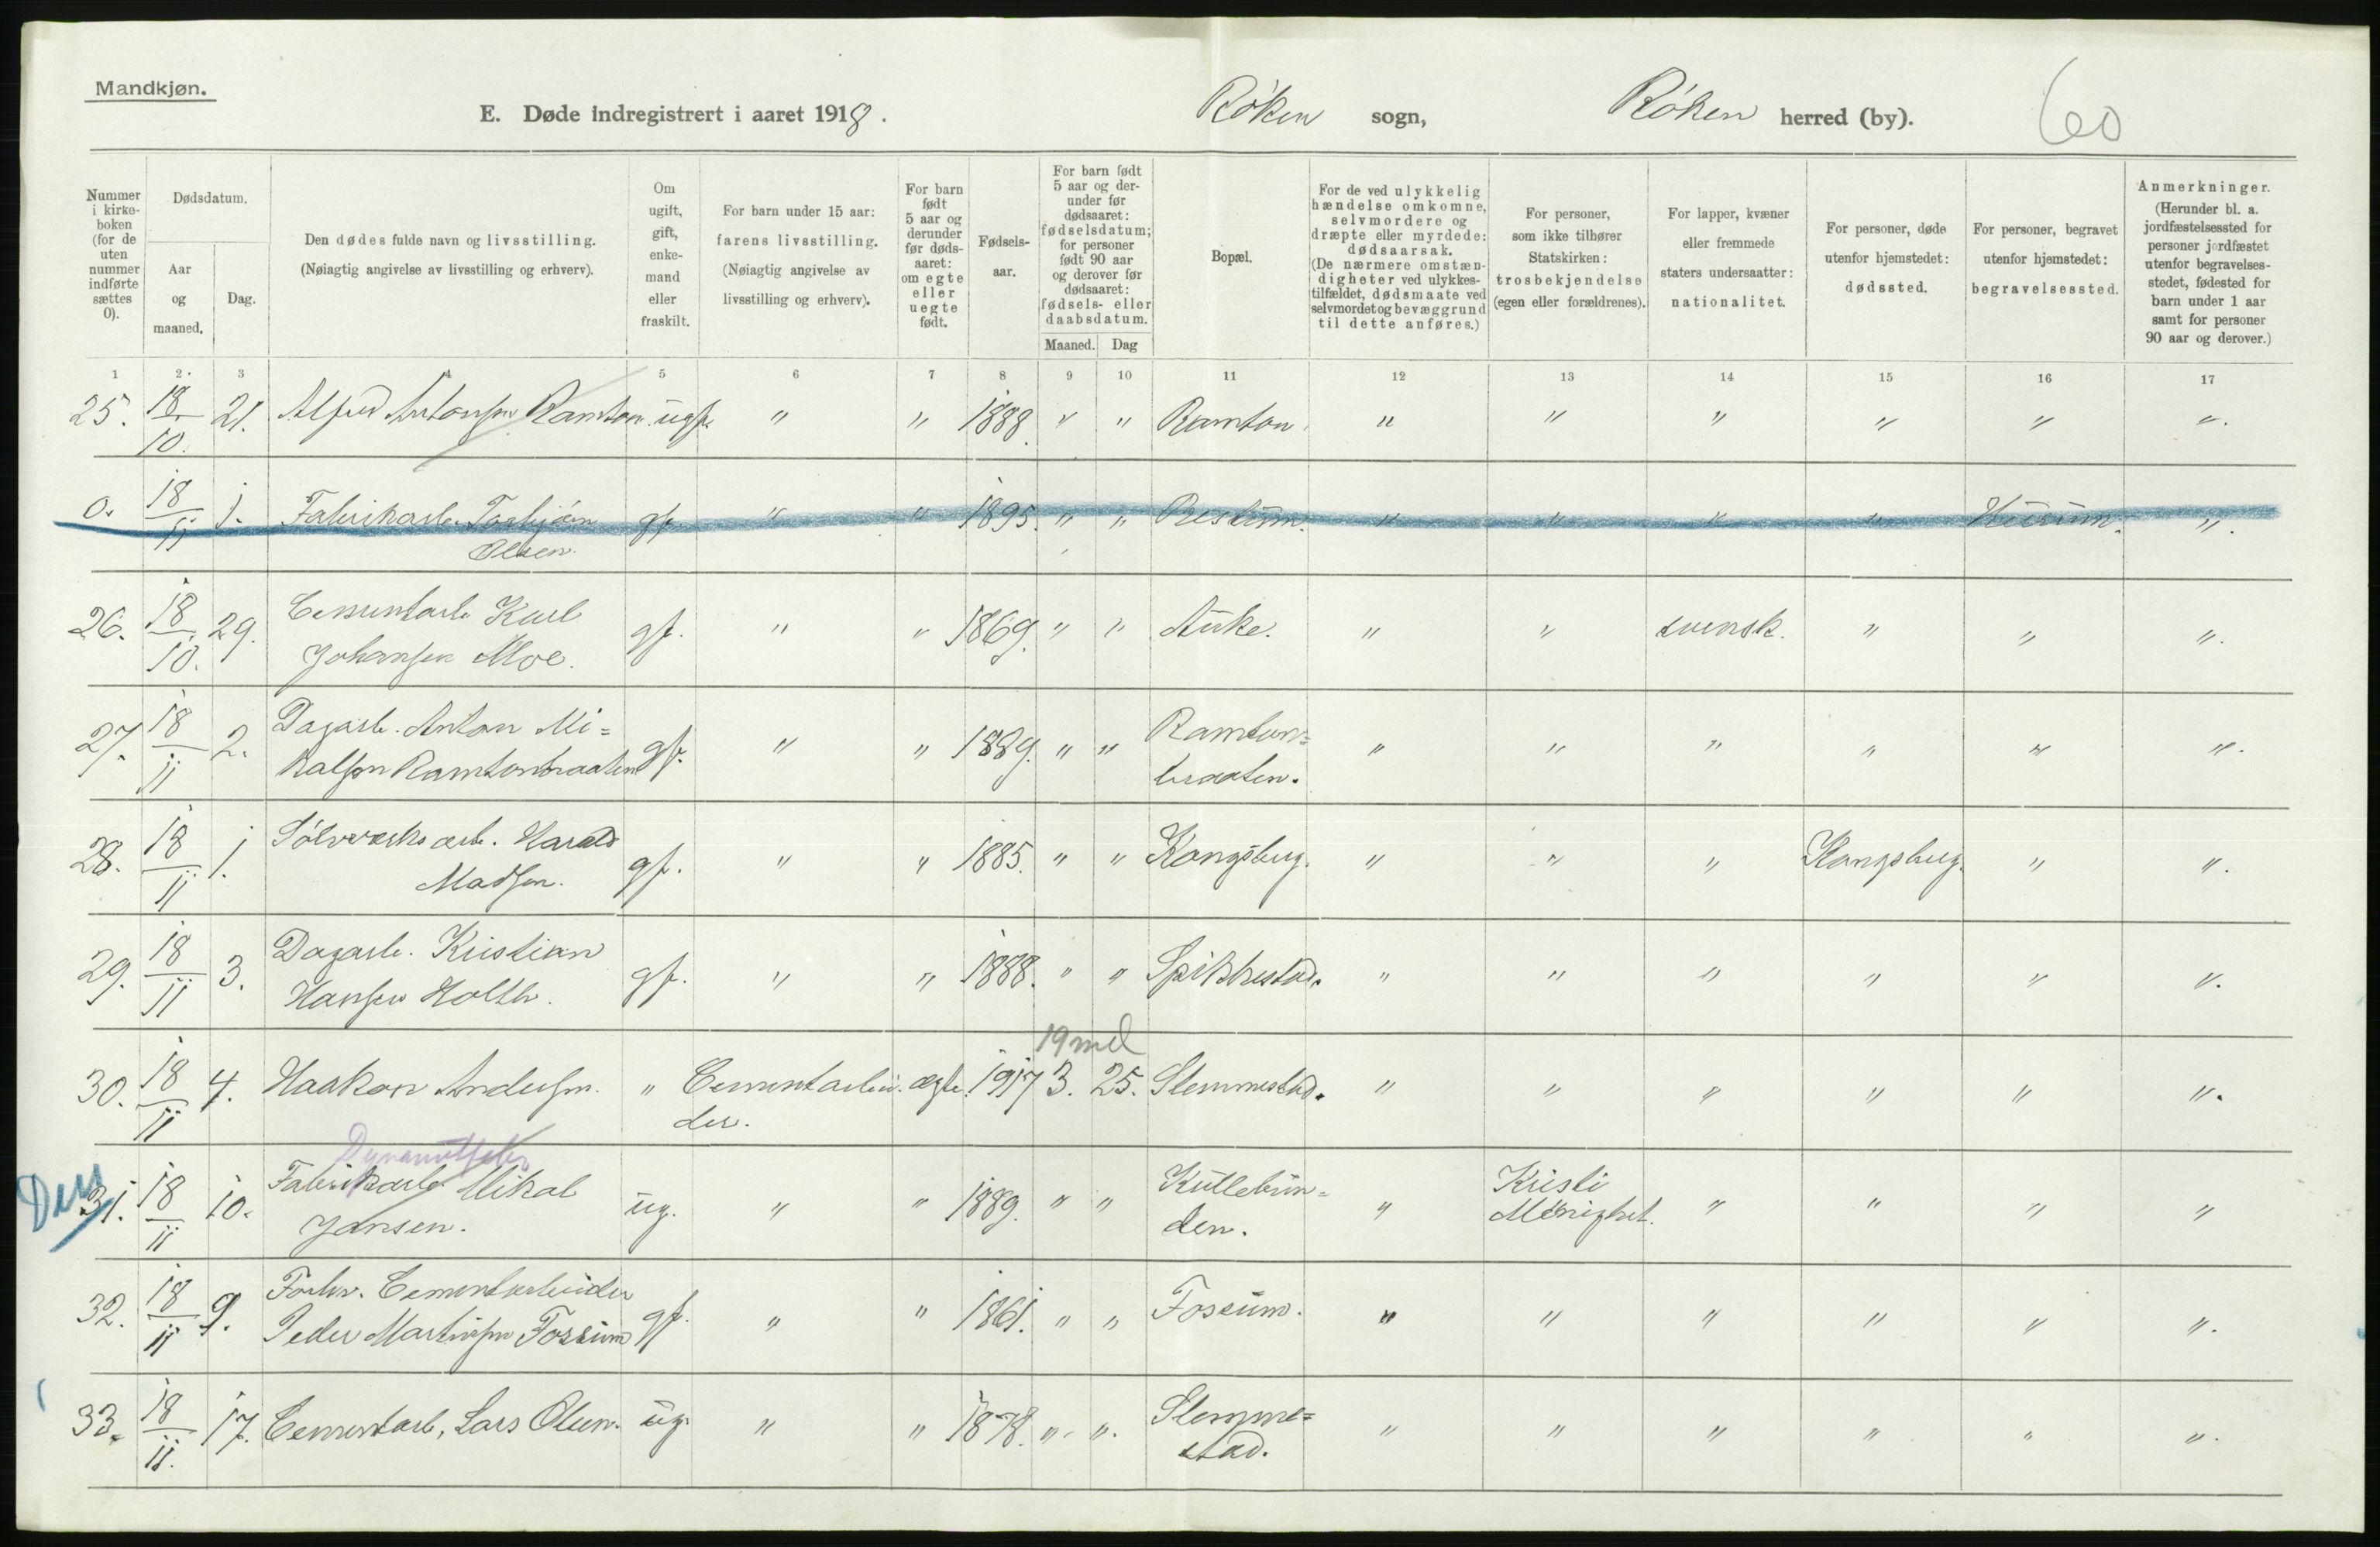 Mandkjøn.
E. Døde indregistrert i aaret 1918. Røken sogn, Røken herred (by). 60
Nummer i kirke-boken (for de uten nummer indførte sættes 0).
Dødsdatum.
Aar og maaned.
Dag.
Den dødes fulde navn og livsstilling.
(Nøiagtig angivelse av livsstilling og erhverv).
Om ugift, gift, enke-mand eller fraskilt.
For barn under 15 aar: farens livsstilling.
(Nøiagtig angivelse av livsstilling og erhverv).
For barn født 5 aar og derunder før døds-aaret: om egte eller uegte født.
Fødsels-aar.
For barn født 5 aar og der-under før dødsaaret: fødselsdatum; for personer født 90 aar og derover før dødsaaret: fødsels- eller daabsdatum.
Maaned. Dag
Bopæl.
For de ved ulykkelig hændelse omkomne, selvmordere og dræpte eller myrdede: dødsaarsak.
(De nærmere omstæn-digheter ved ulykkes-tilfældet, dødsmaate ved selvmordet og bevæggrund til dette anføres.)
For personer, som ikke tilhører Statskirken: trosbekjendelse (egen eller forældrenes).
For lapper, kvæner eller fremmede staters undersaatter: nationalitet.
For personer, døde utenfor hjemstedet: dødssted.
For personer, begravet utenfor hjemstedet: begravelsessted.
Anmerkninger.
(Herunder bl. a. jordfæstelsessted for personer jordfæstet utenfor begravelses-stedet, fødested for barn under 1 aar samt for personer 90 aar og derover.)
1 2 3 4 5 6 7 8 9 10 11 12 13 14 15 16 17
25. 18/10. 21. Alfred Antonsen Ramton. ugft. " " 1888. " " Ramton. " " " " " ".
0. 18/11 1. Fabrikarb. Torbjörn
Olsen. gft. " " 1895. " " Restum. " " " " Hurum. ".
26. 18/10. 29. Cementarb. Karl
Johansen Moe. gft. " " 1869. " " Auke. " " svensk. " " ".
27. 18/11 2. Dagarb. Anton Mi=
kalsen Ramtonbraaten gft. " " 1889. " " Ramton=
braaten. " " " " " ".
28. 18/11 1. Sölvverksarb. Harald
Madsen. gft. " " 1885. " " Kongsberg. " " " Kongsberg. " ".
29. 18/11 3. Dagarb. Kristian
Hansen Holth. gft. " " 1888. " " Spikkestad. " " " " " ".
19 md
30. 18/11 4. Haakon Andersen. " Cementarbei-
der. ægte. 1917 3. 25. Slemmestad. " " " " " ".
Dynamitfabr
31. 18/11 10. Fabrikarb. Mikal
Jansen. ug. " " 1889. " " Kullebun=
den. " Kristi
Menighet. " " " "
32. 18/11 9. Forhv. Cementarbeider
Peder Martinsen Fossum gft. " " 1861. " " Fossum. " " " " " ".
33. 18/11. 17. Cementarb. Lars Olsen. ug. " " 1878. " ". Slemme=
stad. " " " " " ".